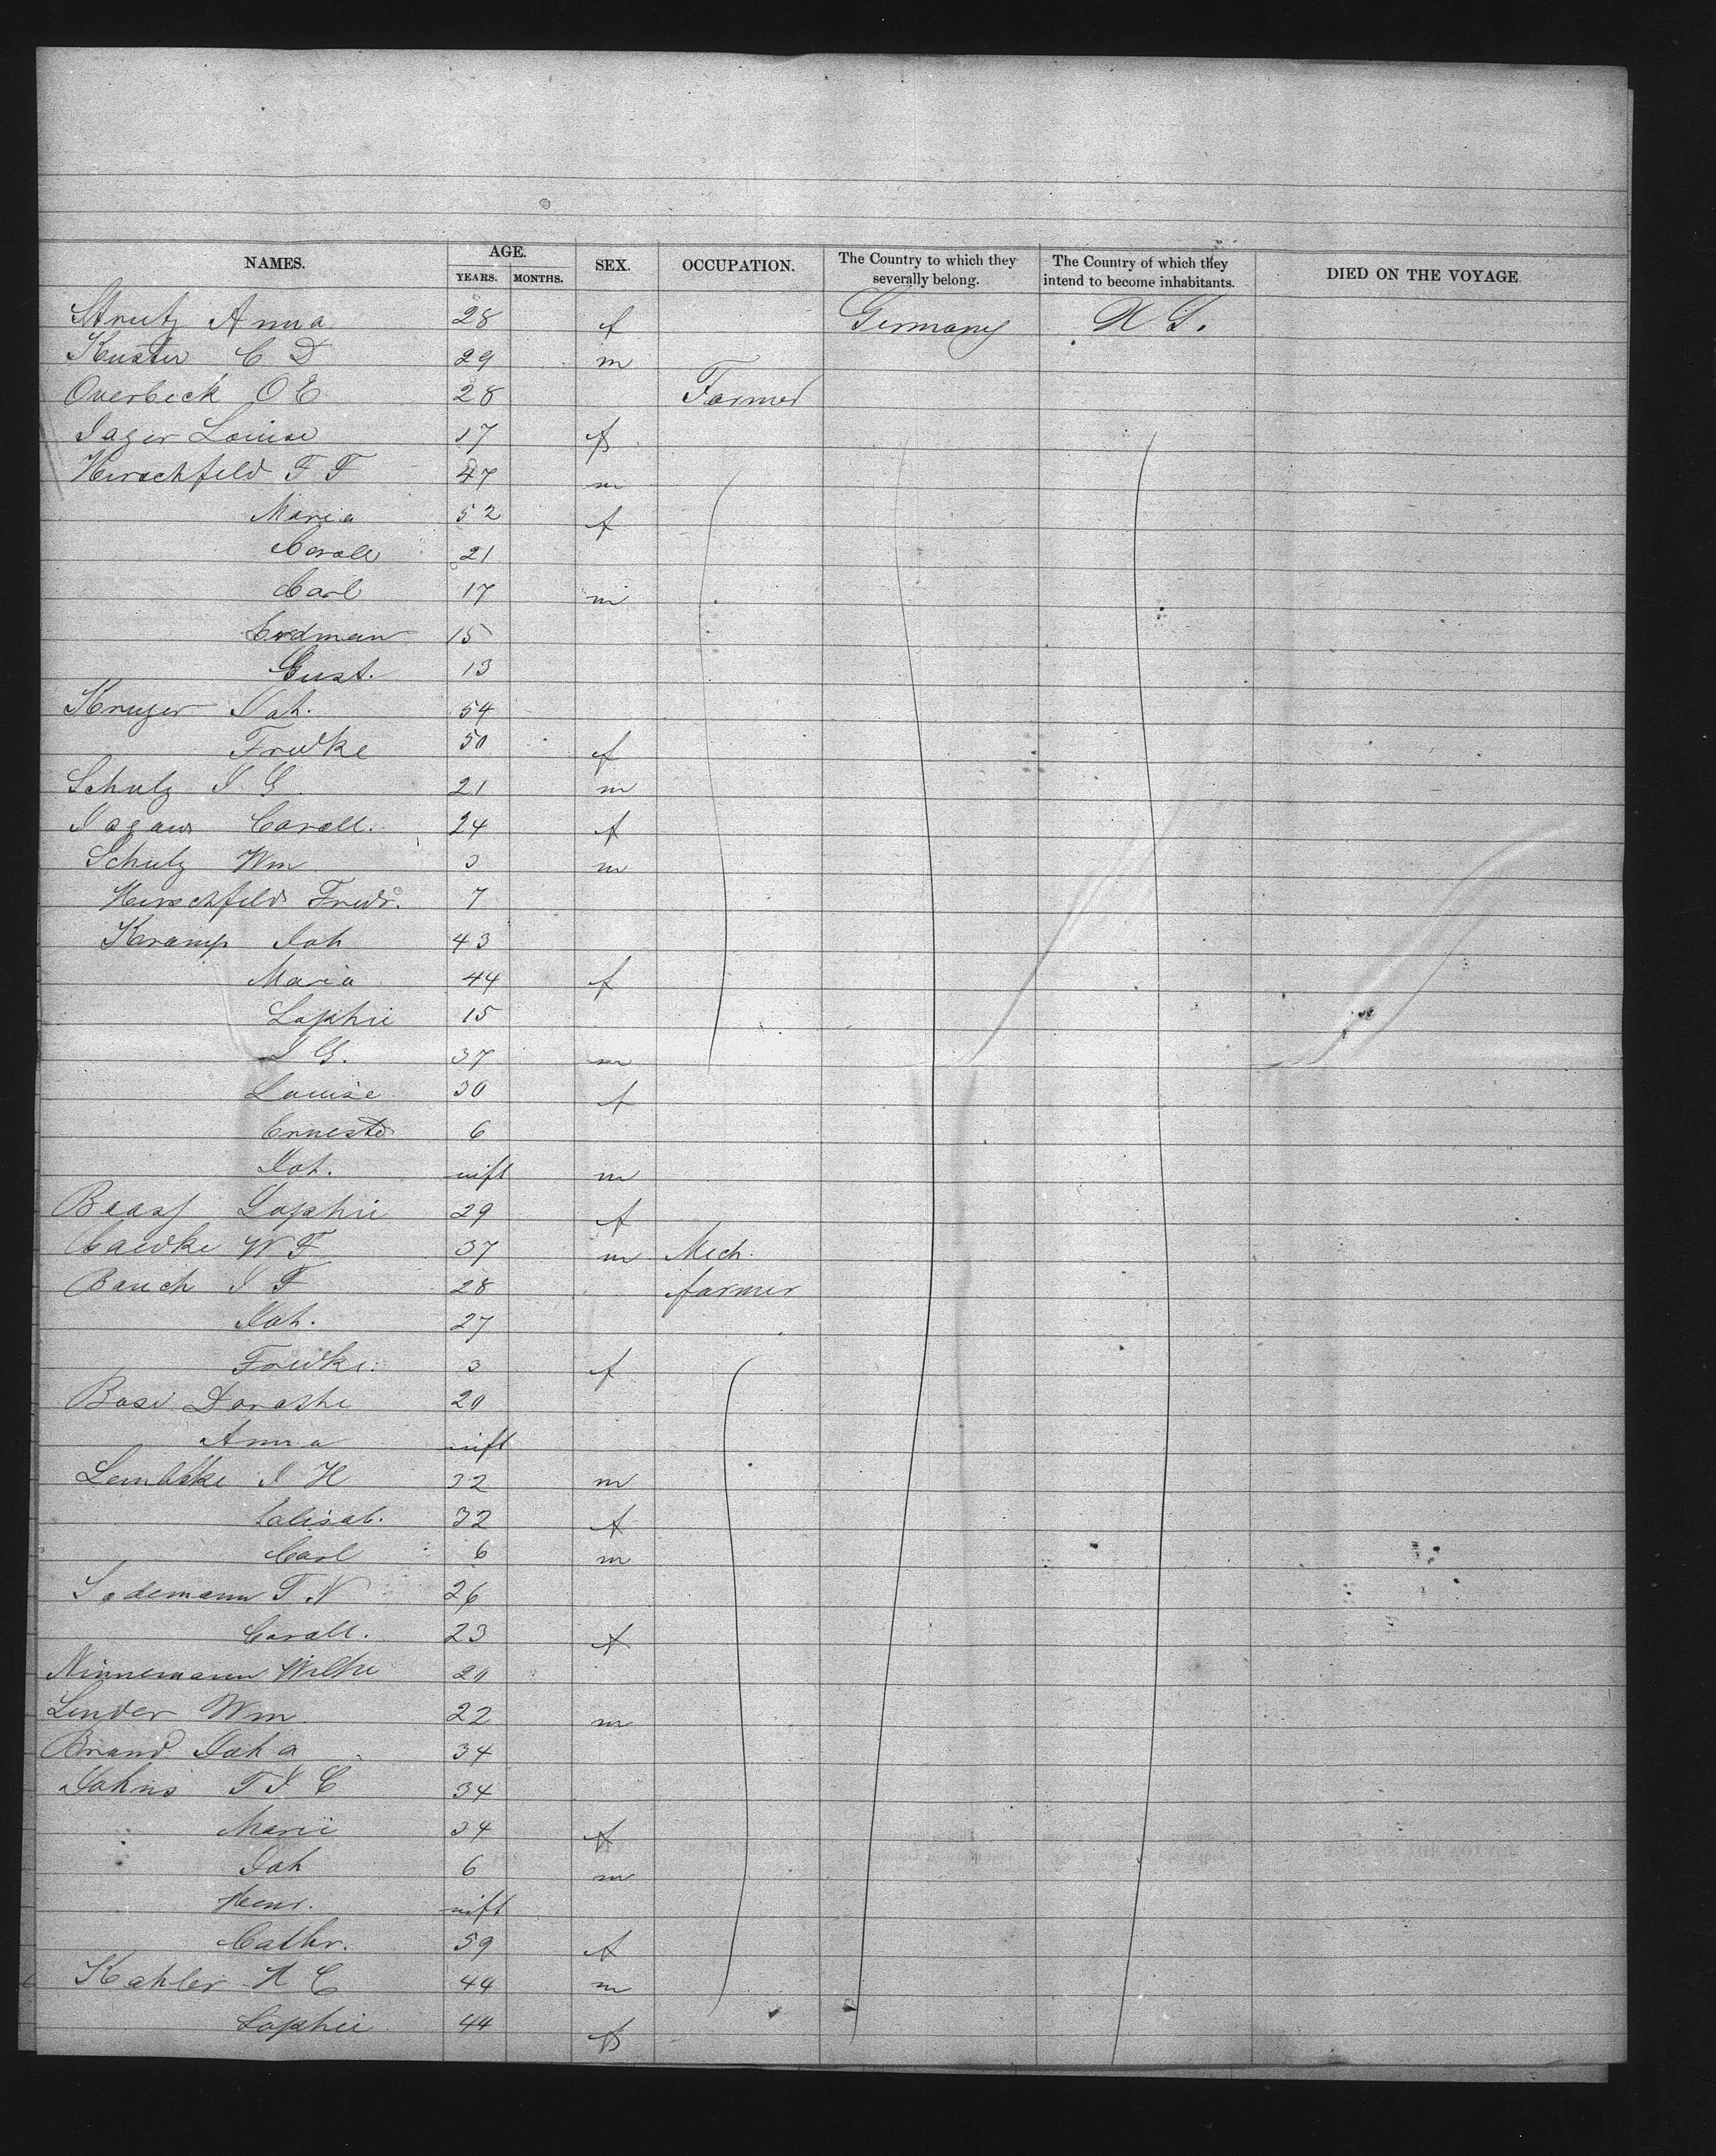 NAMES. AGE. YEARS. MONTHS. SEX. OCCUPATION. The Country to which they severally belong. The Country of which they intend to become inhabitants. DIED ON THE VOYAGE.
Strutz Anna 28 f Germany U S.
Kuster C D 29 m
Overbeck O E 28 Farmer
Jager Louise 17 f
Hirschfeld F F 47 m
Maria 52 f
Caroll 21
Carl 17 m
Erdman 15
Gust. 13
Kruger Joh. 54
Fredke 50 f
Schulz J G 21 m
Caroll. 24 f
Schulz Wm 3 m
Hirschfeld Fredr. 7
Kramp Joh 43
Maria 44 f
Sophie 15
J G. 37 m
Louise 30 f
Ernestd 6
Joh. inft m
Sophie 29 f
W F 37 m Mech.
Bauch J F 28 farmer
Joh. 27
Fredke. 3 f
Bose Dorothe 20
Anna inft
Lembske J H 32 m
Elisab. 32 f
Carl 6 m
Sodemann T N 26
Caroll. 23 f
Ninnemann Wilhe 20
Linder Wm 22 m
Brand Joh a 34
Johns T J C 34
Marie 34 f
Joh 6 m
Henr. inft
Cathr. 59 f
Kahler H C 44 m
Sophie 44 f